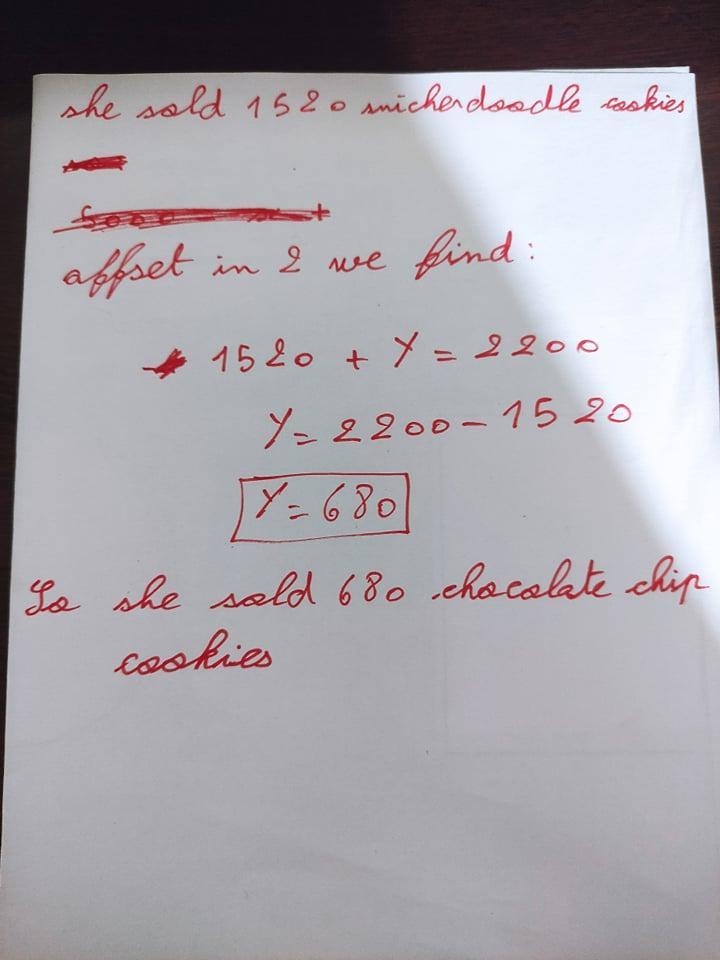 she sold 1520 snickerdoodle cookies
affset in 2 we find:
1520 + Y = 2200
Y = 2200 - 1520
Y = 680
So she sold 680 chocolate chip
cookies